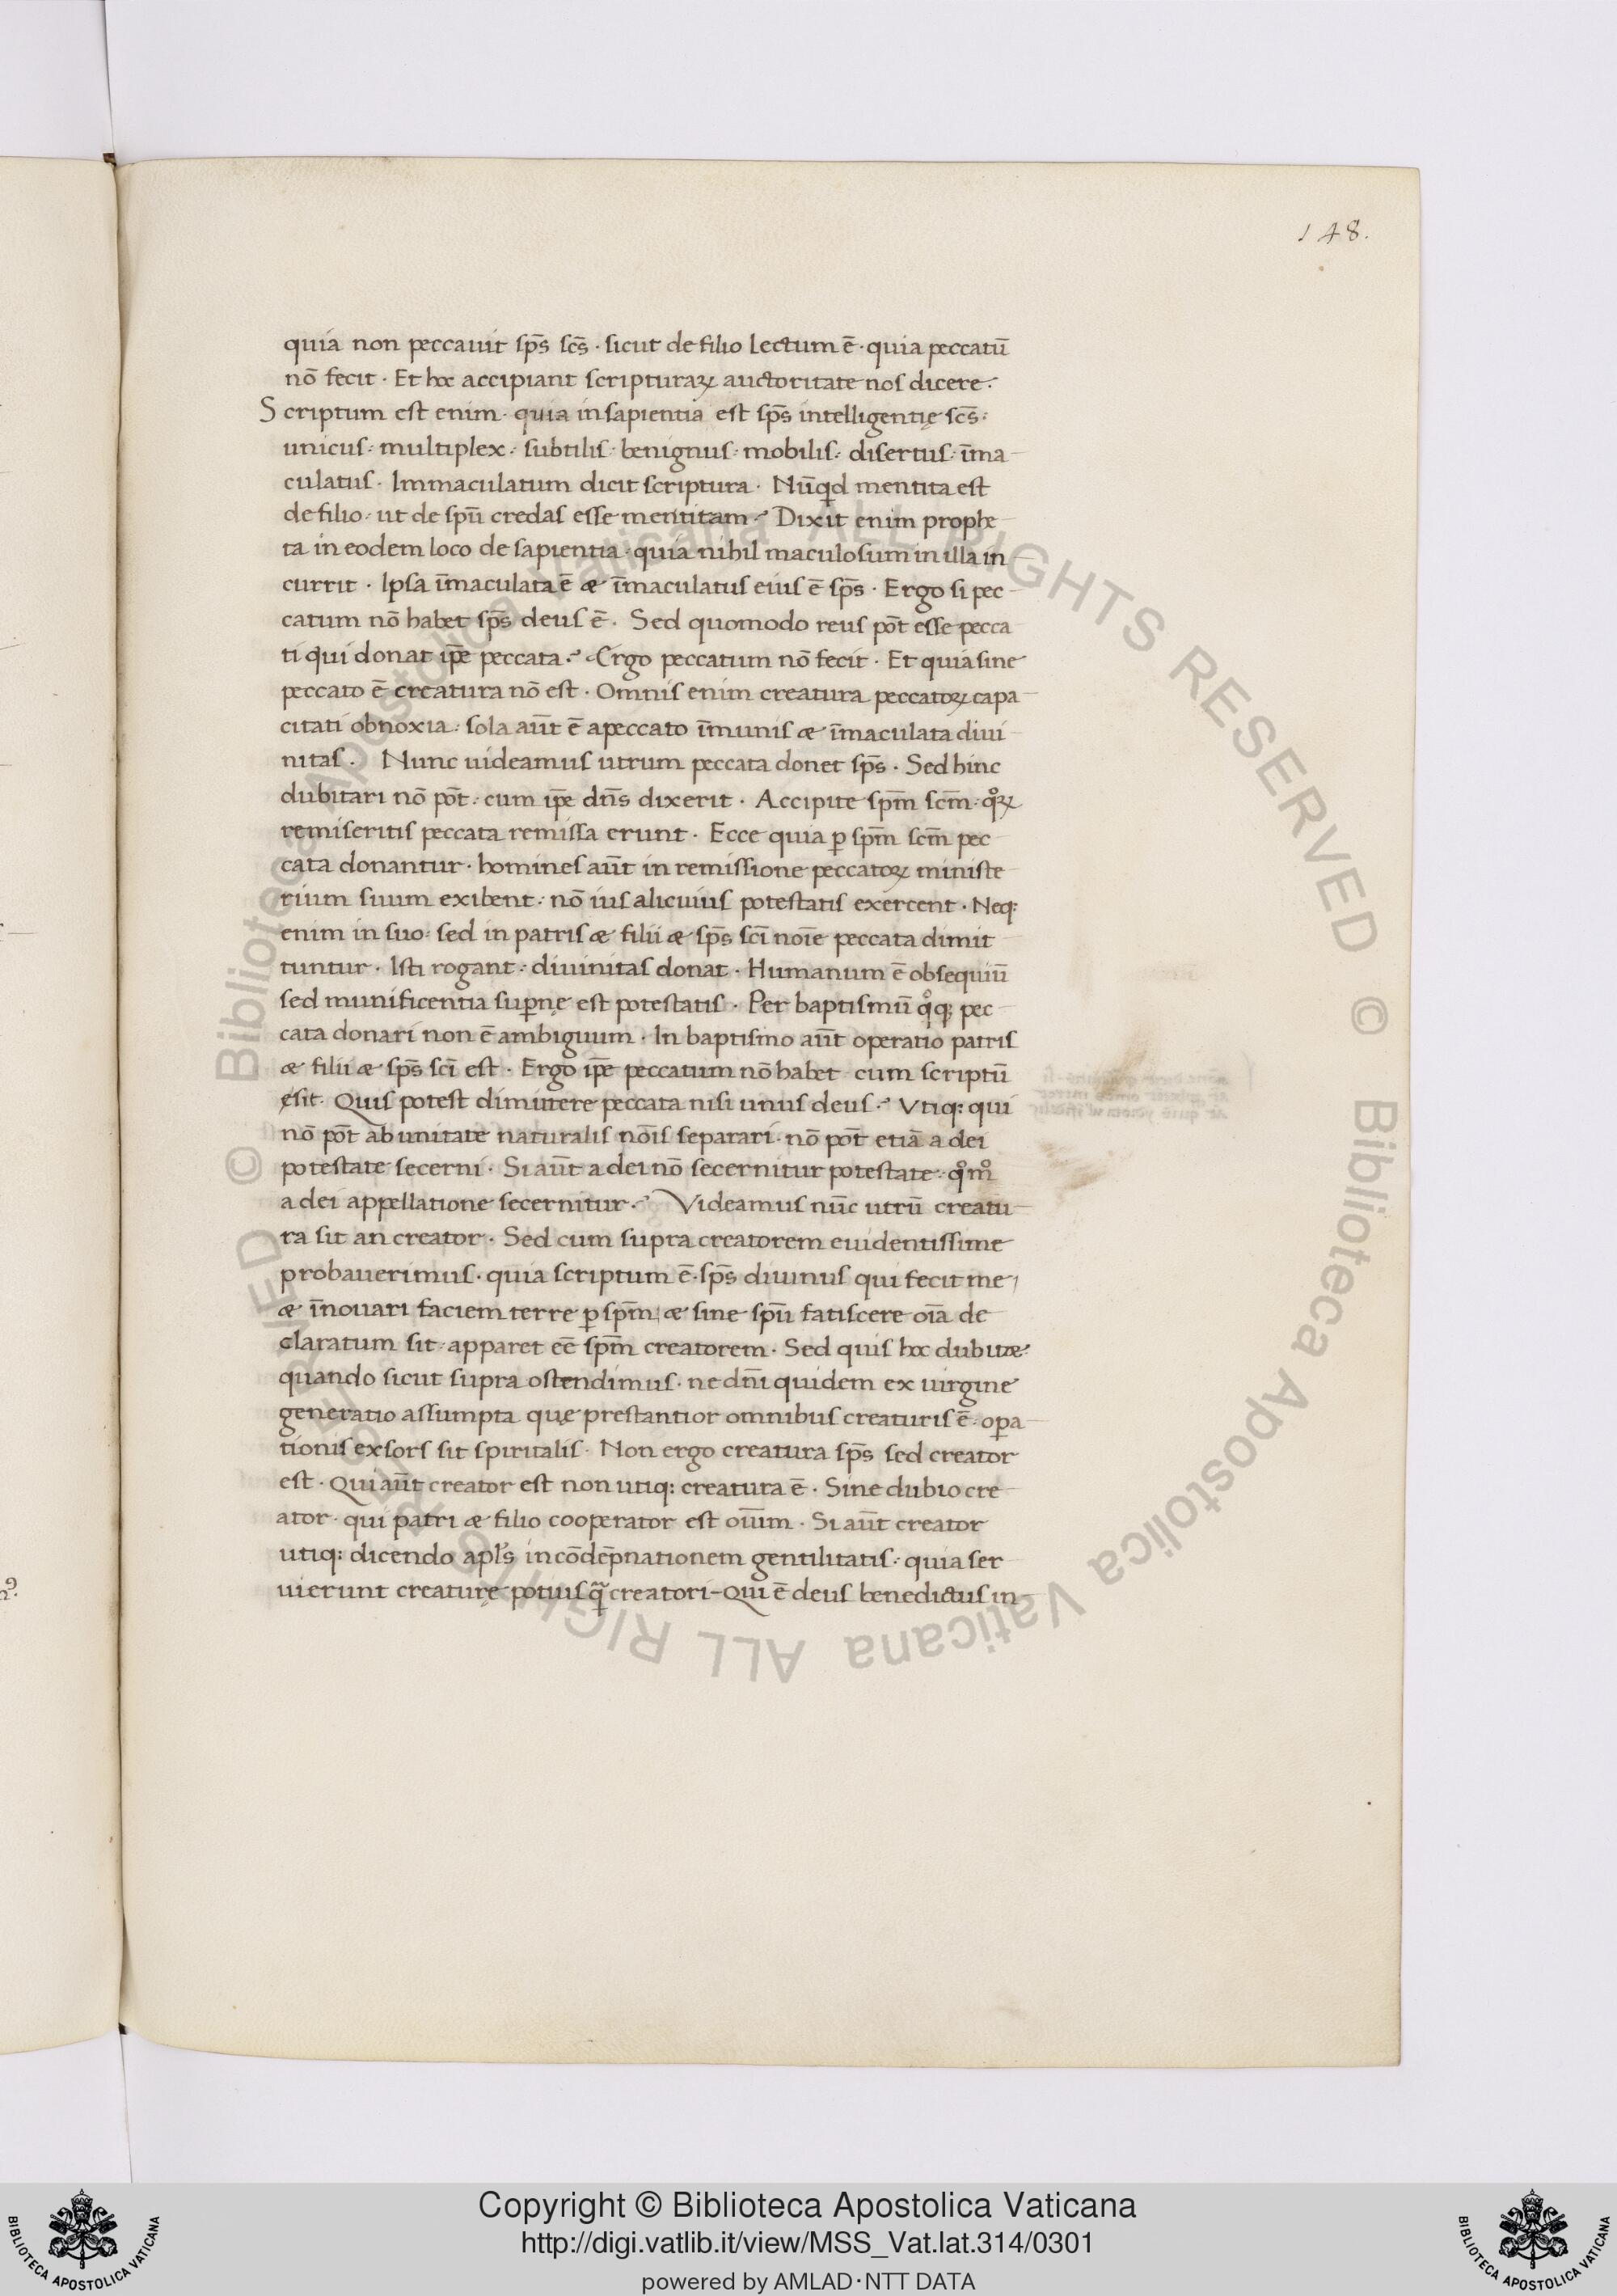 148.
quia non peccauit sp̄s sc̄s · sicut de filio lectum ē · quia peccatū
nō fecit · Et hoc accipiant scripturaꝝ auctoritate nos dicere ·
Scriptum est enim · quia in sapientia est sp̄s intelligentię sc̄s ·
unicus · multiplex · subtilis · benignus · mobilis · disertus · īma
culatus · Immaculatum dicit scriptura · Nūqd mentita est
de filio · ut de spū credas esse mentitam · Dixit enim prophe
ta in eodem loco de sapientia · quia nihil maculosum in illa in
currit · Ipsa īmaculata ē æ īmaculatus eius ē sp̄s · Ergo si pec
catum nō habet sp̄s deus ē · Sed quomodo reus pōt esse pecca
ti qui donat ip̄e peccata · Ergo peccatum nō fecit · Et quia sine
peccato ē creatura nō est · Omnis enim creatura peccatoꝝ capa
citati obnoxia · sola aūt ē a peccato īmunis æ īmaculata diui
nitas · Nunc uideamus utrum peccata donet sp̄s · Sed hinc
dubitari nō pōt · cum ip̄e dn̄s dixerit · Accipite sp̄m sc̄m · qͦꝝ
remiseritis peccata remissa erunt · Ecce quia ꝑ sp̄m sc̄m pec
cata donantur · homines aūt in remissione peccatoꝝ ministe
rium suum exibent · nō ius alicuius potestatis exercent · Neq:
enim in suo · sed in patris æ filii æ sp̄s sc̄i noīe peccata dimit
tuntur · Isti rogant · diuinitas donat · Humanum ē obsequiū
sed munificentia suꝑnę est potestatis · Per baptismū qͦq; pec
cata donari non ē ambiguum · In baptismo aūt operatio patris
æ filii æ sp̄s sc̄i est · Ergo ip̄e peccatum nō habet cum scriptū
sit · Quis potest dimittere peccata nisi unus deus · Vtiq: qui
nō pōt ab unitate naturalis noīs separari · nō pōt etiā a dei
potestate secerni · Si aūt a dei nō secernitur potestate · qͦmͦ
a dei appellatione secernitur · Videamus nūc utrū creatu
ra sit an creator · Sed cum supra creatorem euidentissime
probauerimus · quia scriptum ē · sp̄s diuinus qui fecit me
æ īnouari faciem terre ꝑ sp̄m, æ sine spū fatiscere oīa de
claratum sit · apparet eē sp̄m creatorem · Sed quis hoc dubitæ ·
quando sicut supra ostendimus · ne dn̄i quidem ex uirgine
generatio assumpta quę prestantior omnibus creaturis ē · oꝑa
tionis exsors sit spiritalis · Non ergo creatura sp̄s sed creator
est · Qui aūt creator est non utiq: creatura ē · Sine dubio cre
ator · qui patri æ filio cooperator est oīum · Si aūt creator
utiq: dicendo apl̄s in cōdēpnationem gentilitatis · quia ser
uierunt creaturę potius q̄ creatori - Qui ē deus benedictus in
Copyright © Biblioteca Apostolica Vaticana
http://digi.vatlib.it/view/MSS_Vat.lat.314/0301
powered by AMLAD·NTT DATA